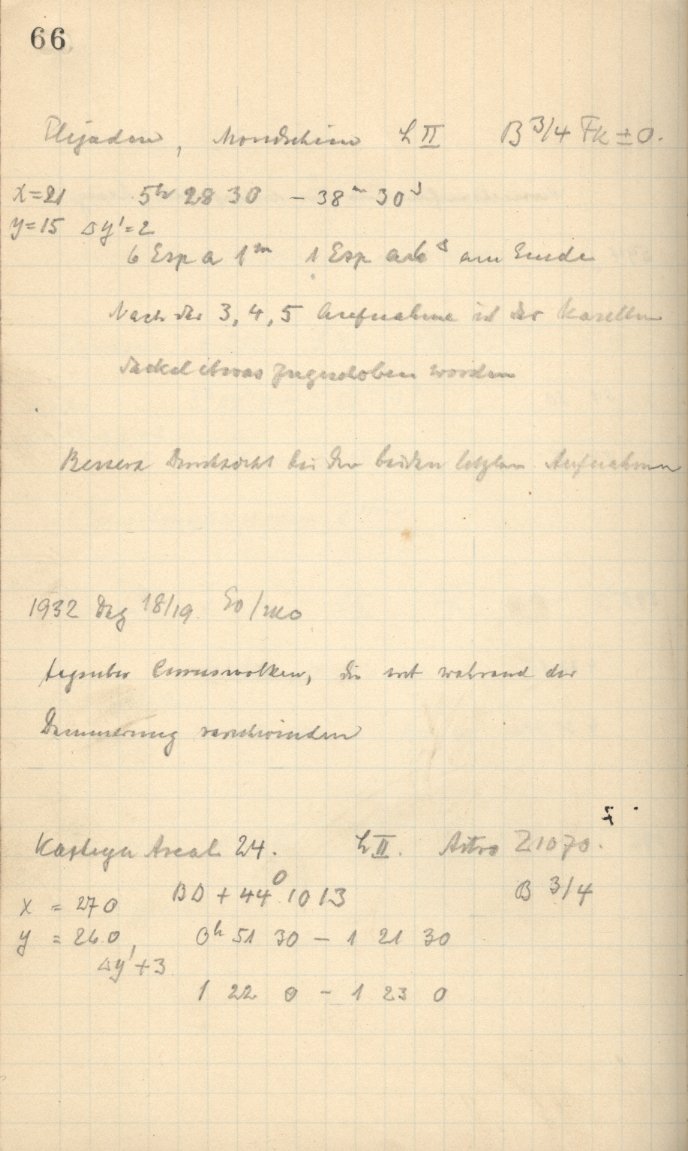 66
Plejaden, Mondschein L II B 3/4 Fk ± 0.
x=21 5h 28 30 – 38m 30s
y=15 Δy'=2
6 Exp a 1m 1 Exp am Ende
Nach der 3, 4, 5 Aufnahme ist der Kasetten
deckel etwas zugeschoben worden
Bessere Durchsicht bei den beiden letzten Aufnahmen
1932 Dez 18/19 So/Mo
tagsüber Cirruswolken, die erst während der
Dämmerung verschwinden
Kapteyn Areal 24. L II. Astro Z 1070.
x = 270 BD + 44° 1013 B 3/4
y = 260, 0h 51 30 – 1 21 30
Δy'+3
1 22 0 – 1 23 0